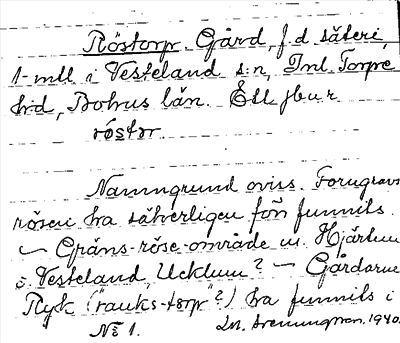 Röstorp. Gård, f.d. säteri,
1 mtl i Vesteland s:n, Inl. Torpe
hrd, Bohus län. Ett jbur
röstor
Namngrund oviss. Forngravs
rösen ha säkerligen förr funnits.
— Gräns-röse-område m. Hjärtum
i Vesteland, Ucklum? — Gårdarne
Ryk ("rauks-torp"?) ha funnits i
No 1. 1940.